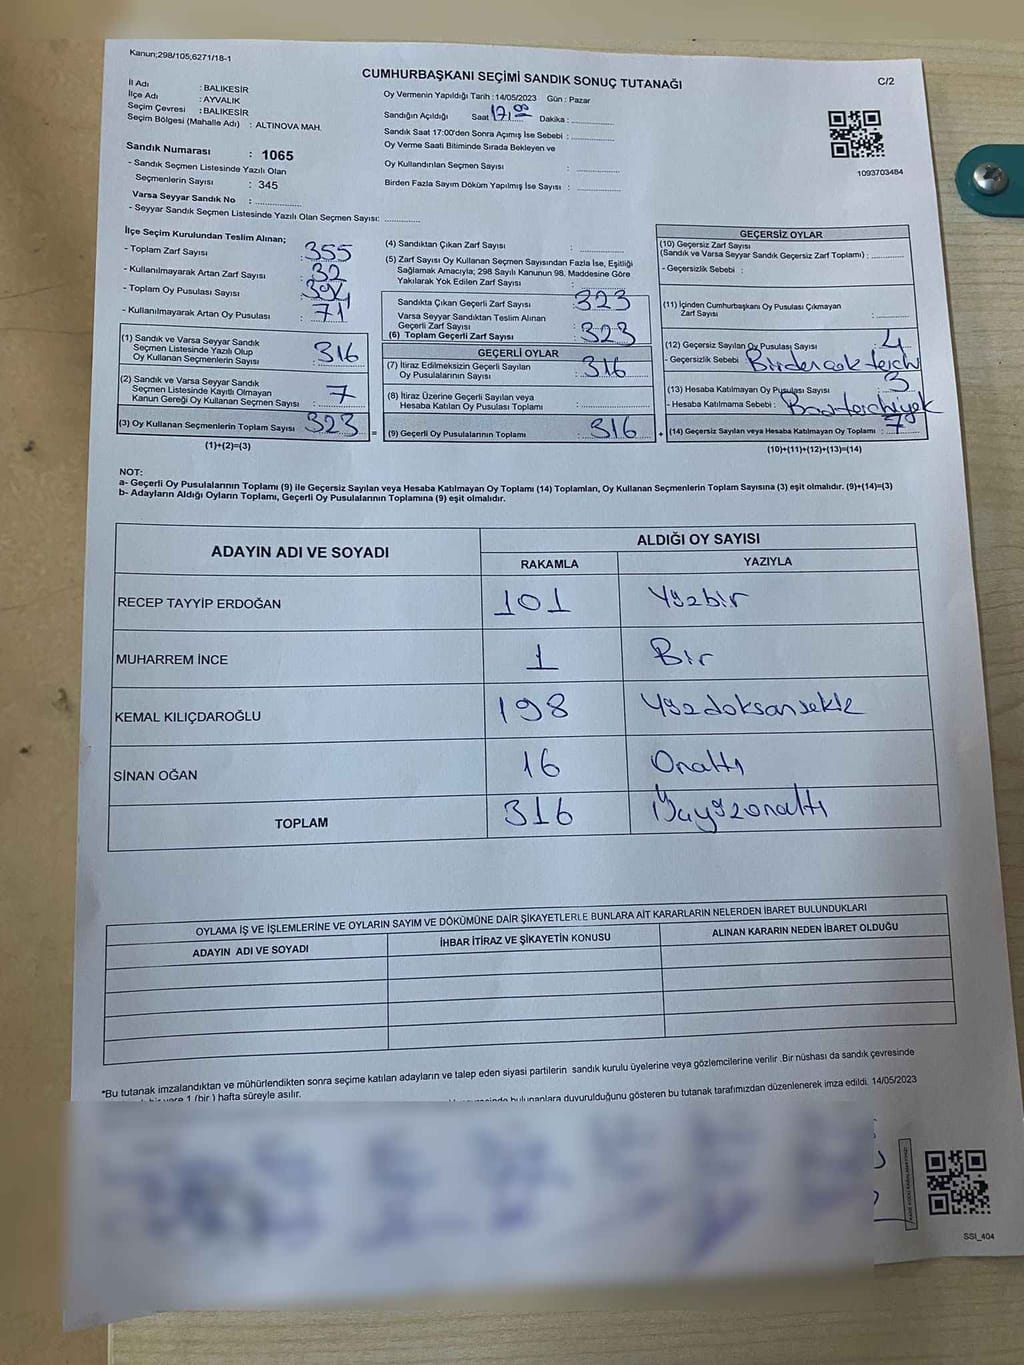 Kanun;298/105;6271/18-1
CUMHURBAŞKANI SEÇİMİ SANDIK SONUÇ TUTANAĞI
C/2
İl Adı : BALIKESİR
İlçe Adı : AYVALIK
Seçim Çevresi : BALIKESİR
Seçim Bölgesi (Mahalle Adı) : ALTINOVA MAH.
Sandık Numarası : 1065
- Sandık Seçmen Listesinde Yazılı Olan
Seçmenlerin Sayısı : 345
Varsa Seyyar Sandık No :
- Seyyar Sandık Seçmen Listesinde Yazılı Olan Seçmen Sayısı:
Oy Vermenin Yapıldığı Tarih : 14/05/2023 Gün : Pazar
Sandığın Açıldığı Saat 17,00 Dakika :
Sandık Saat 17:00'den Sonra Açımış İse Sebebi :
Oy Verme Saati Bitiminde Sırada Bekleyen ve
Oy Kullandırılan Seçmen Sayısı :
Birden Fazla Sayım Döküm Yapılmış İse Sayısı :
1093703484
İlçe Seçim Kurulundan Teslim Alınan;
- Toplam Zarf Sayısı : 355
- Kullanılmayarak Artan Zarf Sayısı : 32
- Toplam Oy Pusulası Sayısı :
- Kullanılmayarak Artan Oy Pusulası : 71
(1) Sandık ve Varsa Seyyar Sandık
Seçmen Listesinde Yazılı Olup
Oy Kullanan Seçmenlerin Sayısı : 316
(2) Sandık ve Varsa Seyyar Sandık
Seçmen Listesinde Kayıtlı Olmayan
Kanun Gereği Oy Kullanan Seçmen Sayısı : 7
(3) Oy Kullanan Seçmenlerin Toplam Sayısı : 323
(1)+(2)=(3)
=
(4) Sandıktan Çıkan Zarf Sayısı :
(5) Zarf Sayısı Oy Kullanan Seçmen Sayısından Fazla İse, Eşitliği
Sağlamak Amacıyla; 298 Sayılı Kanunun 98. Maddesine Göre
Yakılarak Yok Edilen Zarf Sayısı :
Sandıkta Çıkan Geçerli Zarf Sayısı : 323
Varsa Seyyar Sandıktan Teslim Alınan
Geçerli Zarf Sayısı
(6) Toplam Geçerli Zarf Sayısı : 323
GEÇERLİ OYLAR
(7) İtiraz Edilmeksizin Geçerli Sayılan
Oy Pusulalarının Sayısı : 316
(8) İtiraz Üzerine Geçerli Sayılan veya
Hesaba Katılan Oy Pusulası Toplamı :
(9) Geçerli Oy Pusulalarının Toplamı : 316
+
GEÇERSİZ OYLAR
(10) Geçersiz Zarf Sayısı
(Sandık ve Varsa Seyyar Sandık Geçersiz Zarf Toplamı) :
- Geçersizlik Sebebi :
(11) İçinden Cumhurbaşkanı Oy Pusulası Çıkmayan
Zarf Sayısı :
(12) Geçersiz Sayılan Oy Pusulası Sayısı : 4
- Geçersizlik Sebebi : Birden çok tercih
(13) Hesaba Katılmayan Oy Pusulası Sayısı : 3
- Hesaba Katılmama Sebebi :
(14) Geçersiz Sayılan veya Hesaba Katılmayan Oy Toplamı : 7
(10)+(11)+(12)+(13)=(14)
NOT:
a- Geçerli Oy Pusulalarının Toplamı (9) ile Geçersiz Sayılan veya Hesaba Katılmayan Oy Toplamı (14) Toplamları, Oy Kullanan Seçmenlerin Toplam Sayısına (3) eşit olmalıdır. (9)+(14)=(3)
b- Adayların Aldığı Oyların Toplamı, Geçerli Oy Pusulalarının Toplamına (9) eşit olmalıdır.
ADAYIN ADI VE SOYADI
ALDIĞI OY SAYISI
RAKAMLA YAZIYLA
RECEP TAYYİP ERDOĞAN 101 Yüzbir
MUHARREM İNCE 1 Bir
KEMAL KILIÇDAROĞLU 198 Yüzdoksansekiz
SİNAN OĞAN 16 Onaltı
TOPLAM 316 Üçyüzonaltı
OYLAMA İŞ VE İŞLEMLERİNE VE OYLARIN SAYIM VE DÖKÜMÜNE DAİR ŞİKAYETLERLE BUNLARA AİT KARARLARIN NELERDEN İBARET BULUNDUKLARI
ADAYIN ADI VE SOYADI İHBAR İTİRAZ VE ŞİKAYETİN KONUSU ALINAN KARARIN NEDEN İBARET OLDUĞU
*Bu tutanak imzalandıktan ve mühürlendikten sonra seçime katılan adayların ve talep eden siyasi partilerin sandık kurulu üyelerine veya gözlemcilerine verilir .Bir nüshası da sandık çevresinde
1 (bir ) hafta süreyle asılır.
bulunanlara duyurulduğunu gösteren bu tutanak tarafımızdan düzenlenerek imza edildi. 14/05/2023
SSI_404